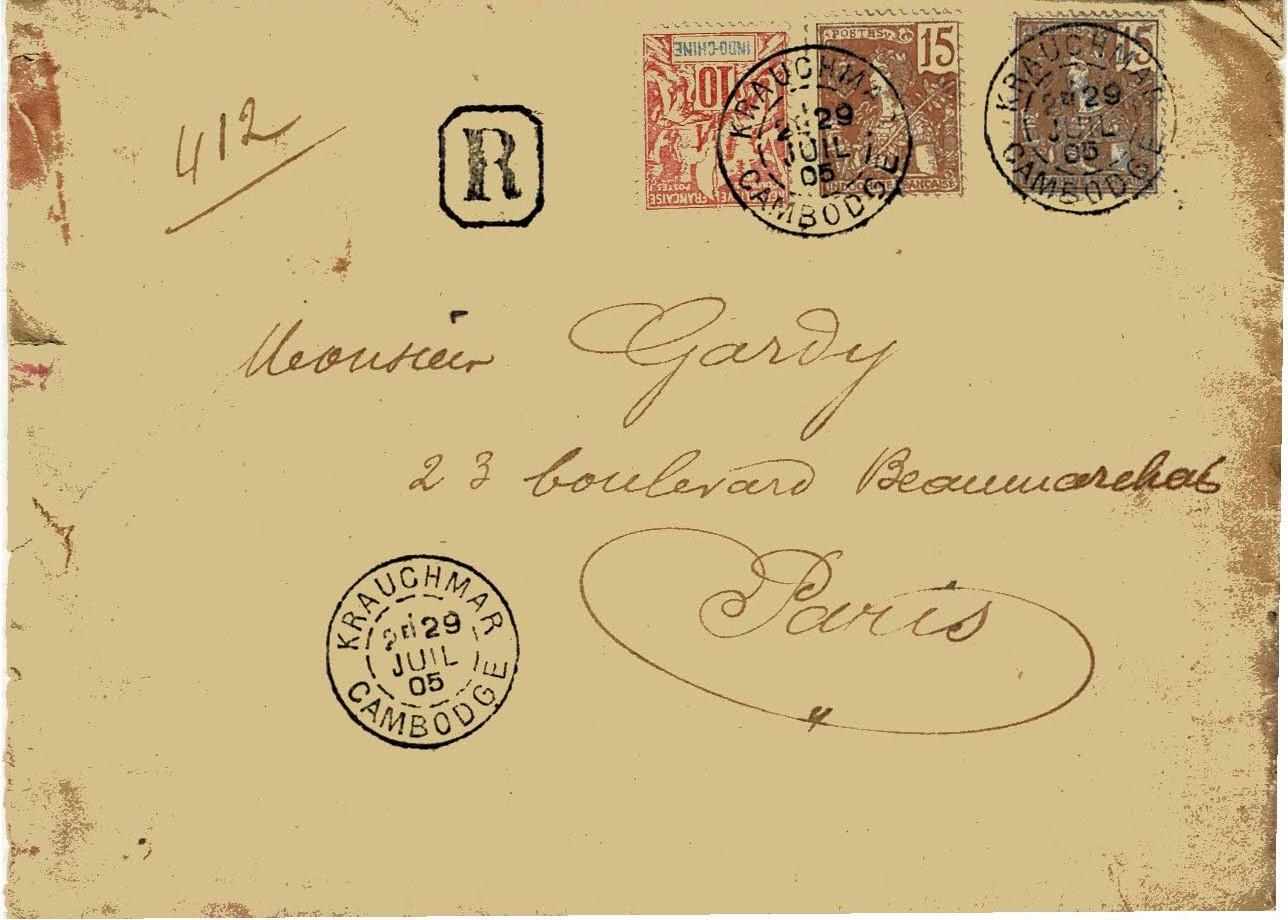 412
R
INDO-CHINE
10
POSTES
15
INDO-CHINE FRANÇAISE
15
KRAUCHMAR
2E 29
JUIL
05
CAMBODGE
KRAUCHMAR
2E 29
JUIL
05
CAMBODGE
Monsieur Gardy
23 boulevard Beaumarchais
Paris
KRAUCHMAR
2E 29
JUIL
05
CAMBODGE